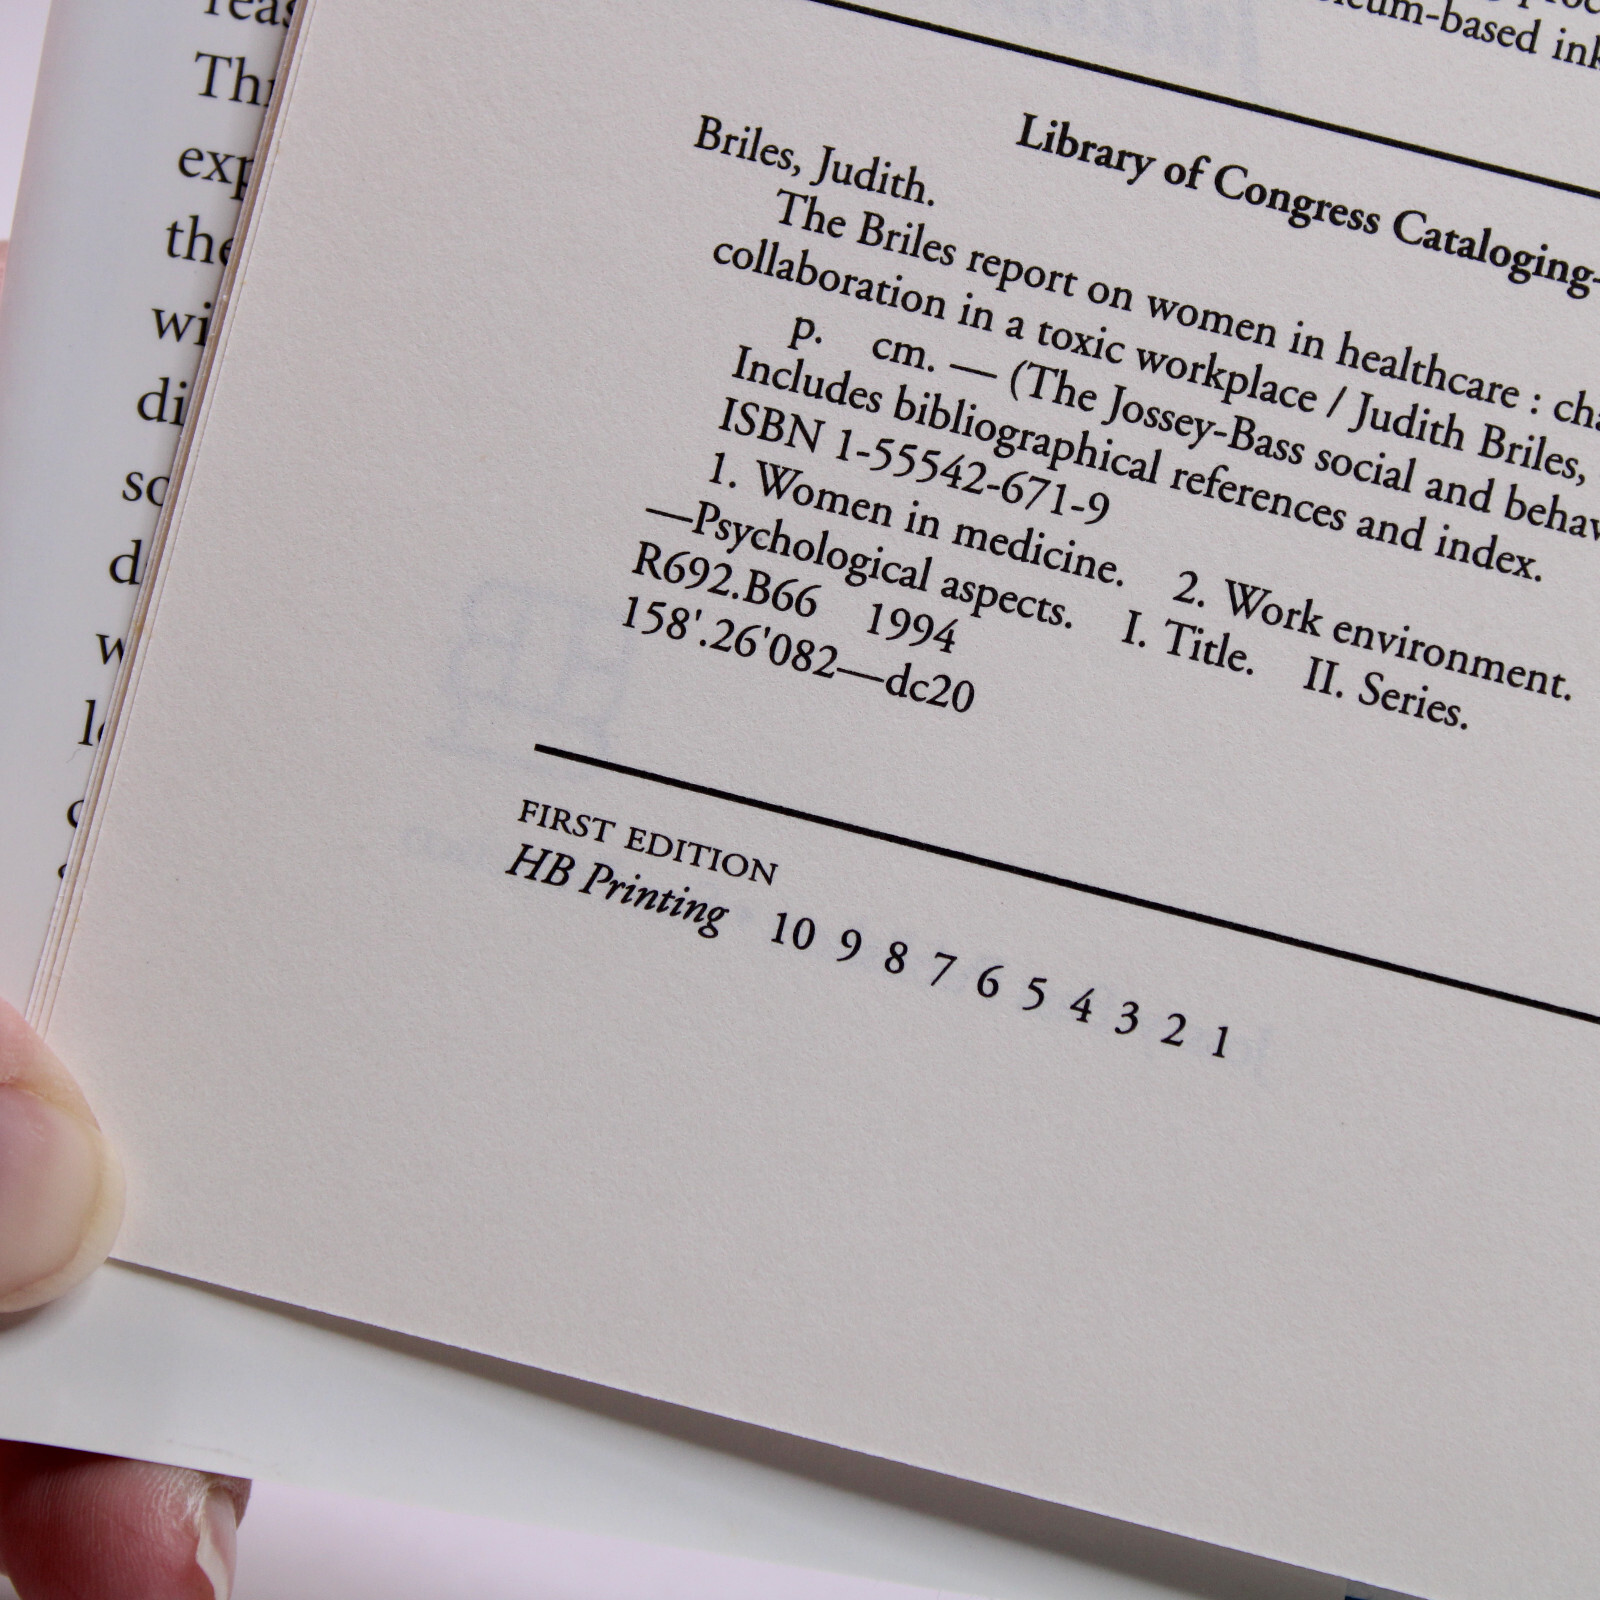 Thr
exp
the
wi
di
so
d
w
cum-based ink
Library of Congress Cataloging-
Briles, Judith.
The Briles report on women in healthcare : cha
collaboration in a toxic workplace / Judith Briles,
p. cm. — (The Jossey-Bass social and behav
Includes bibliographical references and index.
ISBN 1-55542-671-9
1. Women in medicine. 2. Work environment.
—Psychological aspects. I. Title. II. Series.
R692.B66 1994
158'.26'082—dc20
FIRST EDITION
HB Printing 10 9 8 7 6 5 4 3 2 1